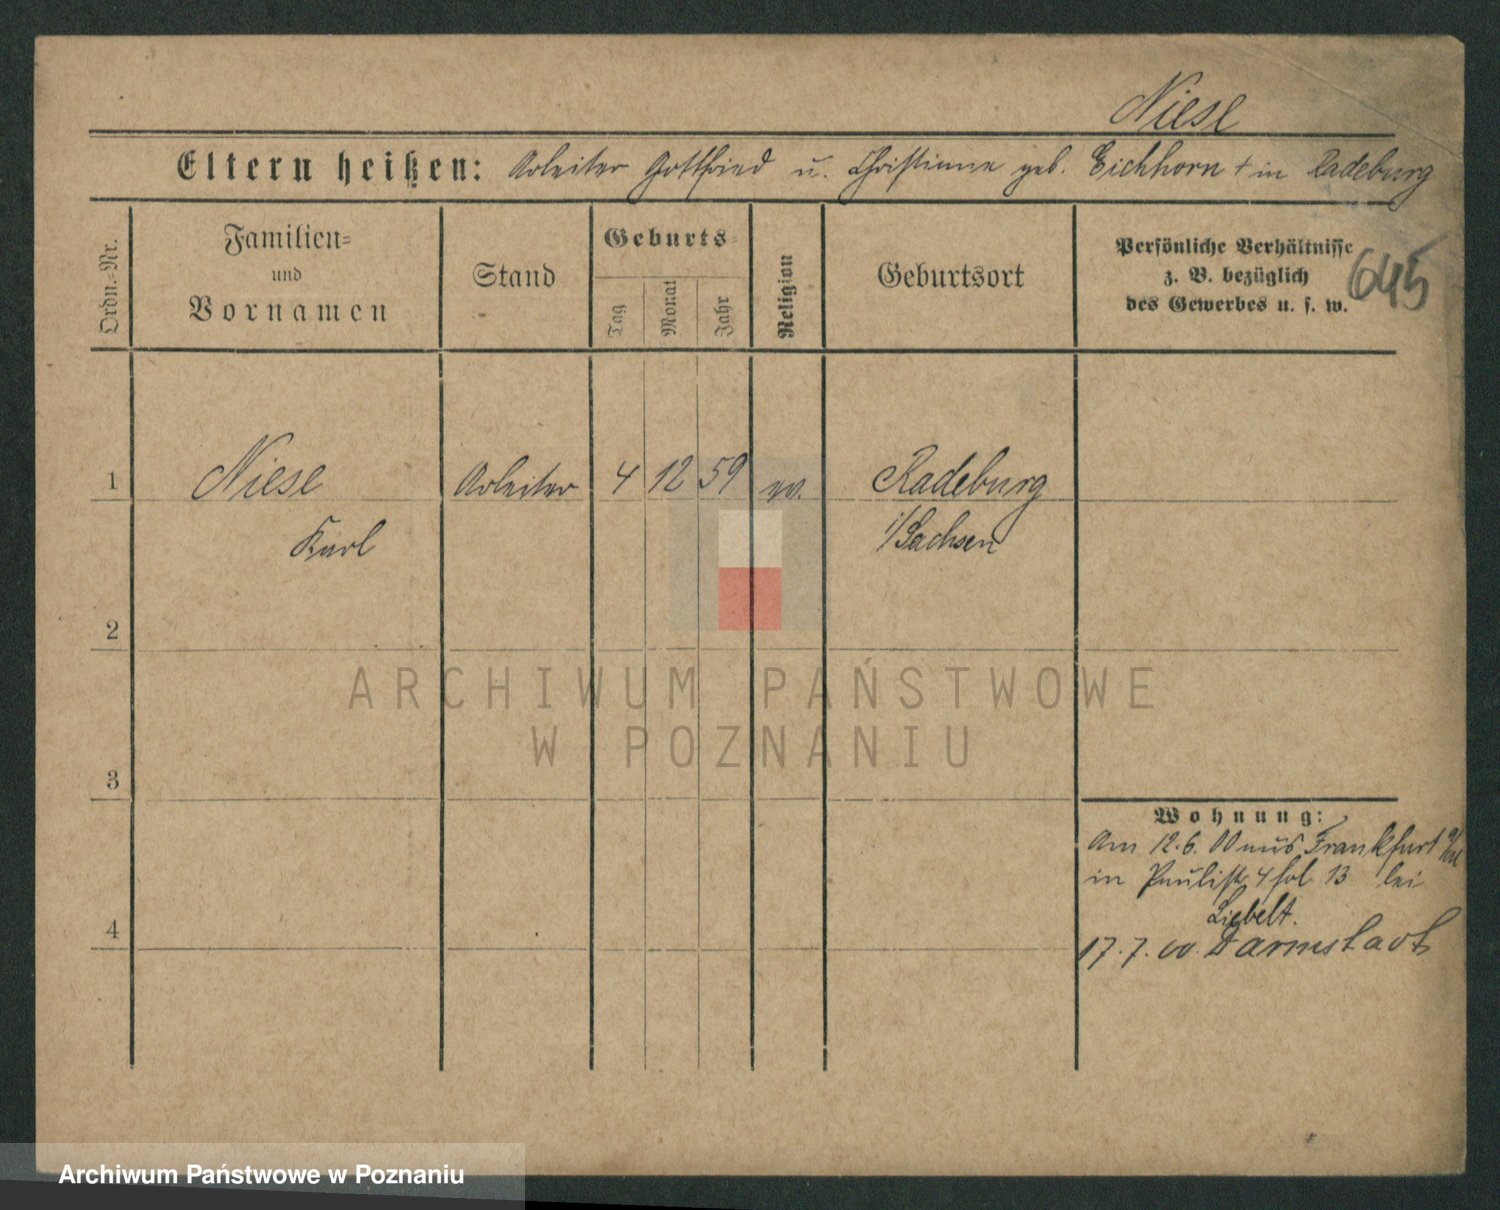 Niese
Eltern heißen: Arbeiter Gottfried u. Christiane geb. Eichhorn † in Radeburg
Ordn.-Nr.
Familien-
und
Vornamen
Stand
Geburts-
Tag
Monat
Jahr
Religion
Geburtsort
Persönliche Verhältnisse
z. B. bezüglich
des Gewerbes u. s. w.
645
1 Niese Arbeiter 4 12 59 ev. Radeburg
Karl i/Sachsen
2
ARCHIWUM PAŃSTWOWE
W POZNANIU
3
Wohnung:
Am 12.6.00 aus Frankfurt a/M
in Paulistr. 4 fol. 13 bei
4 Liebelt.
17.7.00. Darmstadt
Archiwum Państwowe w Poznaniu